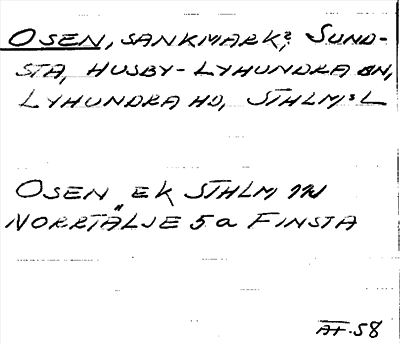 OSEN, SANKMARK, SUND-
STA, HUSBY-LYHUNDRA SN,
LYHUNDRA HD, STHLM:S L
OSEN EK STHLM
NORRTÄLJE 5a FINSTA
AF.58